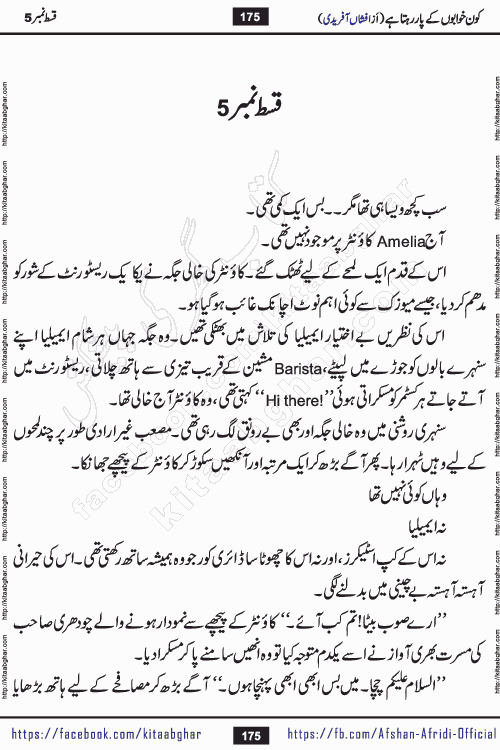 کون خوابوں کے پار رہتا ہے (از افشاں آفریدی) 175 قسط نمبر 5
قسط نمبر 5
سب کچھ ویسا ہی تھا مگر۔۔بس ایک کمی تھی۔
آج Amelia کاؤنٹر پر موجود نہیں تھی۔
اس کے قدم ایک لمحے کے لیے ٹھٹک گئے۔ کاؤنٹر کی خالی جگہ نے یکایک ریسٹورنٹ کے شور کو
مدھم کر دیا، جیسے میوزک سے کوئی اہم نوٹ اچانک غائب ہو گیا ہو۔
اس کی نظریں بے اختیار ایمیلیا کی تلاش میں بھٹکی تھیں۔ وہ جگہ جہاں ہر شام ایمیلیا اپنے
سنہرے بالوں کو جوڑے میں لپیٹے، Barista مشین کے قریب تیزی سے ہاتھ چلاتی، ریسٹورنٹ میں
آتے جاتے ہر کسٹمر کو مسکراتی ہوئی ”Hi there!“ کہتی تھی، وہ کاؤنٹر آج خالی تھا۔
سنہری روشنی میں وہ خالی جگہ اور بھی بے رونق لگ رہی تھی۔ مصعب غیر ارادی طور پر چند لمحوں
کے لیے وہیں ٹھہرا رہا۔ پھر آگے بڑھ کر ایک مرتبہ اور آنکھیں سکوڑ کر کاؤنٹر کے پیچھے جھانکا۔
وہاں کوئی نہیں تھا
نہ ایمیلیا
نہ اس کے کپ اسٹیکرز، اور نہ اس کا چھوٹا سا ڈائری کور جو وہ ہمیشہ ساتھ رکھتی تھی۔ اس کی حیرانی
آہستہ آہستہ بے چینی میں بدلنے لگی۔
”ارے صوب بیٹا! تم کب آئے۔“ کاؤنٹر کے پیچھے سے نمودار ہونے والے چودھری صاحب
کی مسرت بھری آواز نے اسے یکدم متوجہ کیا تو وہ انھیں سامنے پا کر مسکرا دیا۔
”السلام علیکم چچا۔ میں بس ابھی ابھی پہنچا ہوں۔“ آگے بڑھ کر مصافحے کے لیے ہاتھ بڑھایا
https://facebook.com/kitaabghar 175 https://fb.com/Afshan-Afridi-Official
http://kitaabghar.com
kitaabghar